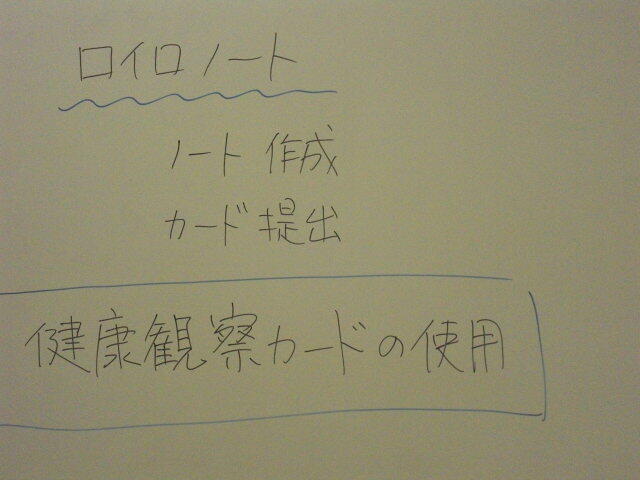 ロイロノート
ノート作成
カード提出
健康観察カードの使用